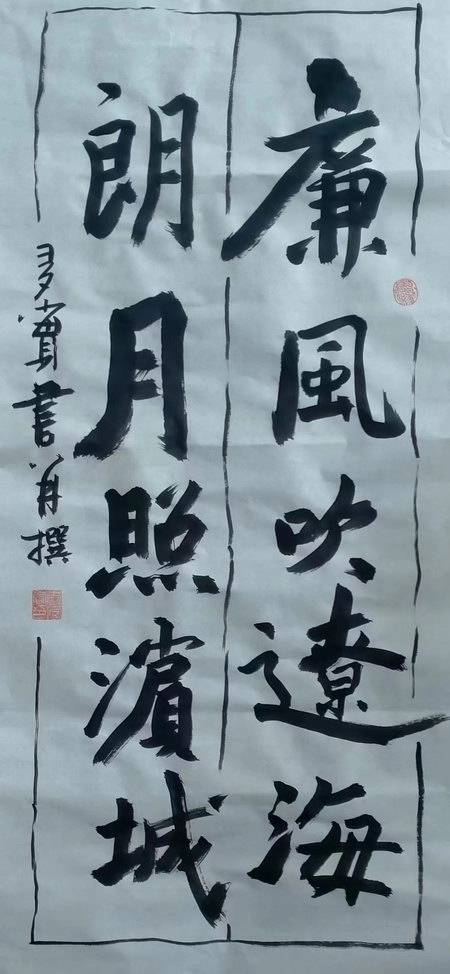 廉風吹遼海
朗月照濱城
書并撰